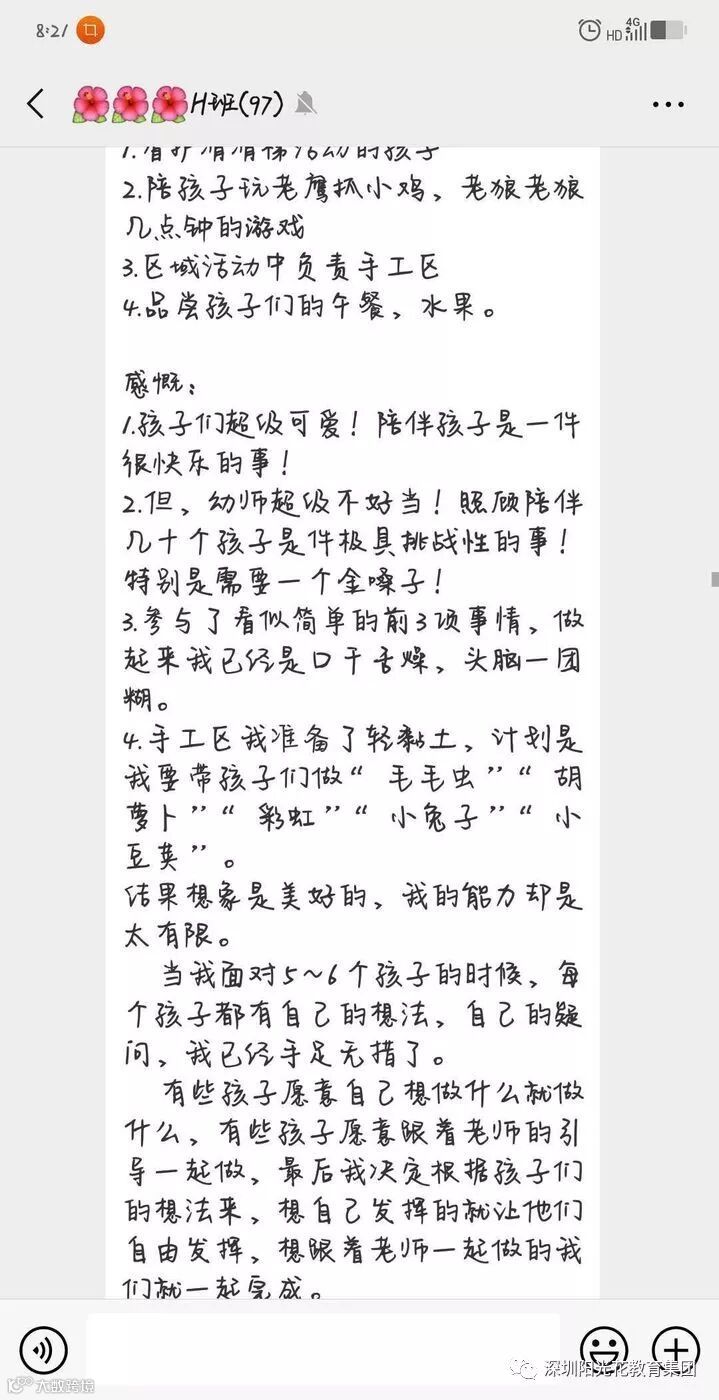 8:27
HD 4G
H班(97)
1.看护滑滑梯活动的孩子
2.陪孩子玩老鹰抓小鸡，老狼老狼
几点钟的游戏
3.区域活动中负责手工区
4.品尝孩子们的午餐，水果。
感慨：
1.孩子们超级可爱！陪伴孩子是一件
很快乐的事！
2.但，幼师超级不好当！照顾陪伴
几十个孩子是件极具挑战性的事！
特别是需要一个金嗓子！
3.参与了看似简单的前3项事情，做
起来我已经是口干舌燥，头脑一团
糊。
4.手工区我准备了轻黏土，计划是
我要带孩子们做“毛毛虫”“胡
萝卜”“彩虹”“小兔子”“小
豆荚”。
结果想象是美好的，我的能力却是
太有限。
当我面对5~6个孩子的时候，每
个孩子都有自己的想法，自己的疑
问，我已经手足无措了。
有些孩子愿意自己想做什么就做
什么，有些孩子愿意跟着老师的引
导一起做，最后我决定根据孩子们
的想法来，想自己发挥的就让他们
自由发挥，想跟着老师一起做的我
们就一起完成。
深圳阳光花教育集团
大数跨境